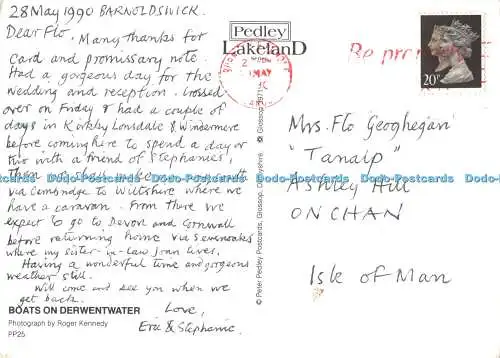 28 May 1990 BARNOLDSWICK.
Dear Flo. Many thanks for
card and promissary note.
Had a gorgeous day for the
wedding and reception. Crossed
over on Friday & had a couple of
days in Kirkby Lonsdale & Windermere
before coming here to spend a day or
two with a friend of Stephanie's,
via Cambridge to Wiltshire where we
have a caravan. From there we
expect to go to Devon and Cornwall
before returning home via Sevenoaks
where my sister-in-law Joan lives.
Having a wonderful time and gorgeous
weather still.
Will come and see you when we
get back.
Love,
Eric & Stephanie.
BOATS ON DERWENTWATER
Photograph by Roger Kennedy
PP25
Pedley
LakelanD
© Peter Pedley Postcards, Glossop, Derbyshire
Glossop
MAY
Be pr
20P
Mrs. Flo Geoghegan
"Tanaip"
Ashley Hill
ONCHAN
Isle of Man
Dodo-Postcards